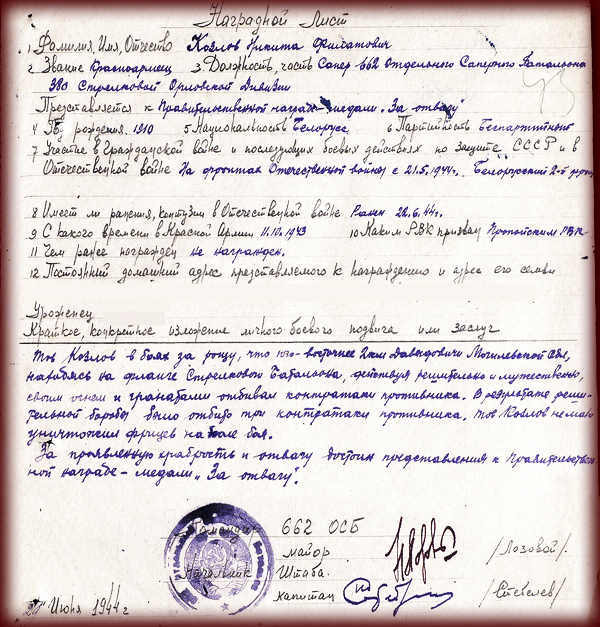 Наградной Лист
1 Фамилия, Имя, Отчество Козлов Никита Филатович
2 Звание Красноармеец 3. Должность, часть Сапер 662 Отдельного Саперного Батальона
380 Стрелковой Орловской Дивизии
Представляется к Правительственной награде-медали „За отвагу"
4 Год рождения 1910 5 Национальность Белорусс 6 Партийность Беспартийный
7 Участие в Гражданской войне и последующих боевых действиях по защите СССР и в
Отечественной войне На фронтах Отечественной войны с 21.5.1944г. Белорусский 2-й
8 Имеет ли ранения, контузии в Отечественной войне Ранен 22.6.44г.
9 С какого времени в Красной Армии 11.10.1943 10 Каким РВК призван Пропойским РВК
11 Чем ранее награжден не награжден.
12 Постоянный домашний адрес представляемого к награждению и адрес его семьи
Уроженец
Краткое, конкретное изложение личного боевого подвига или заслуг
Тов Козлов в боях за рощу, что юго-восточнее 2км Давидовичи Могилевской обл,
находясь на фланге Стрелкового Батальона, действуя решительно и мужественно,
своим огнем и гранатами отбивал контратаки противника. В результате реши-
тельной борьбы было отбито три контратаки противника. Тов Козлов немало
уничтожил фрицев на поле боя.
За проявленную храбрость и отвагу достоин представления к Правительствен-
ной награде-медали „За отвагу".
Командир 662 ОСБ
майор /Лозовой/.
Начальник Штаба.
капитан /Стебелев/
Июня 1944г